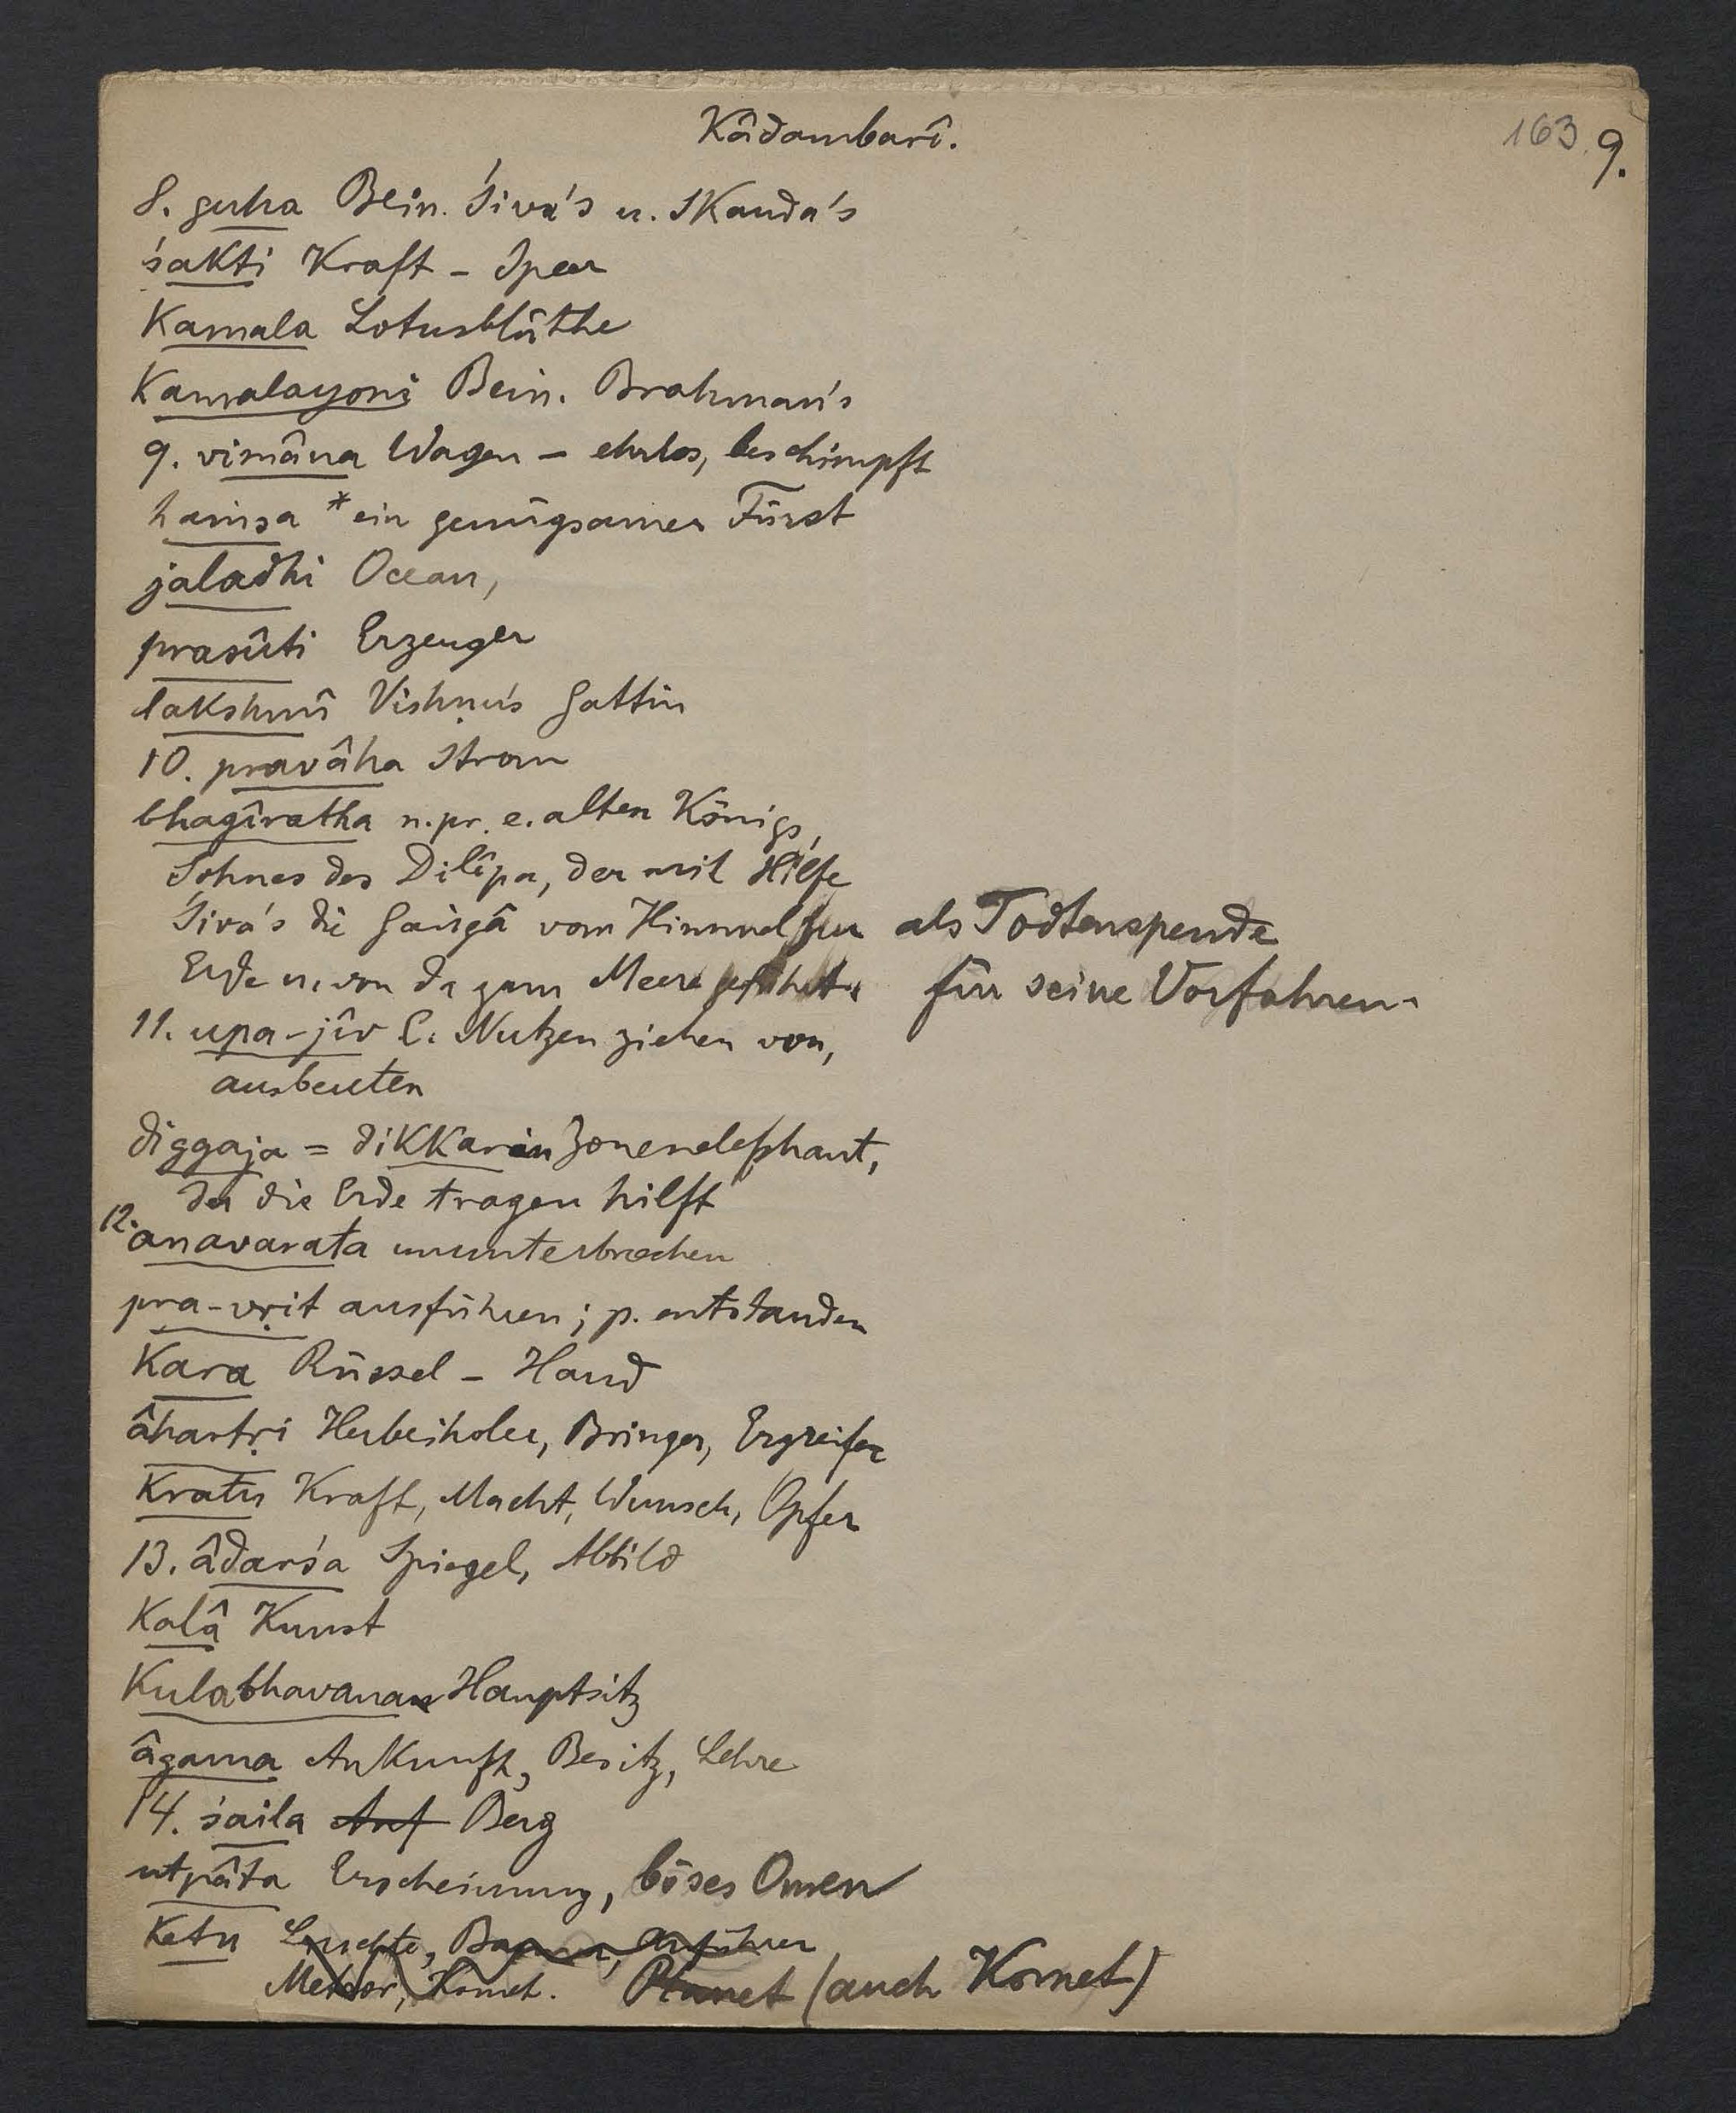 Kâdambarî.
163 9.
8. guha Bein. Śiva's u. Skanda's
śakti Kraft – Speer
Kamala Lotusblüthe
Kamalayoni Bein. Brahman's
9. vimâna Wagen – ehrlos, beschimpft
haṁsa *ein genügsamer Fürst
jaladhi Ocean,
prasûti Erzeuger
lakshmî Vishṇu's Gattin
10. pravâha Strom
bhagîratha n. pr. e. alten Königs,
Sohnes des Dilîpa, der mit Hilfe
Śiva's die Gaṅgâ vom Himmel zur als Todtenspende
Erde u. von da zum Meere geführt. für seine Vorfahren.
11. upa-jîv C. Nutzen ziehen von,
ausbeuten
diggaja = dikkarin Zonenelephant,
der die Erde tragen hilft
12. anavarata ununterbrochen
pra-vṛit ausführen; p. entstanden
Kara Rüssel – Hand
âhartṛi Herbeiholer, Bringer, Ergreifer
Kratu Kraft, Macht, Wunsch, Opfer
13. âdarśa Spiegel, Abbild
Kalâ Kunst
Kulabhavana Hauptsitz
âgama Ankunft, Besitz, Lehre
14. śaila Auf Berg
utpâta Erscheinung, böses Omen
Ketu Leuchte, Banner, Anführer
Meteor, Komet. Planet (auch Komet)